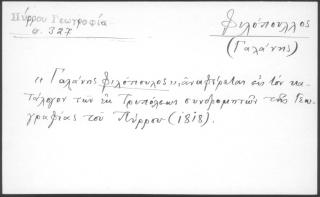 Πύρρου Γεωγραφία
σ. 327
Φιλόπουλλος
(Γαλάνης)
"Γαλάνης Φιλόπουλος", ἀναφέρεται εἰς τὸν κα-
τάλογον τῶν ἐκ Τριπόλεως συνδρομητῶν τῆς Γεω-
γραφίας τοῦ Πύρρου (1818).